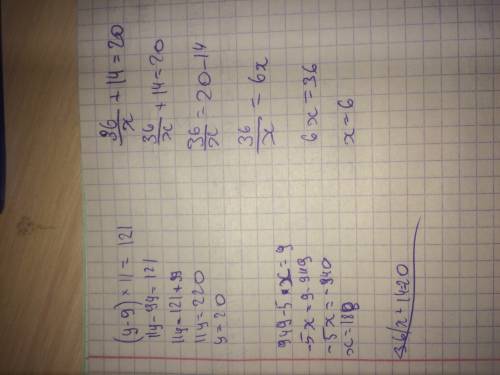 (y-9)×11=121
11y-99=121
11y=121+99
11y=220
y=20
949-5·x=9
-5x=9-949
-5x=-940
x=188
36/x+14=20
36/x+14=20
36/x=20-14
36/x=6x
6x=36
x=6